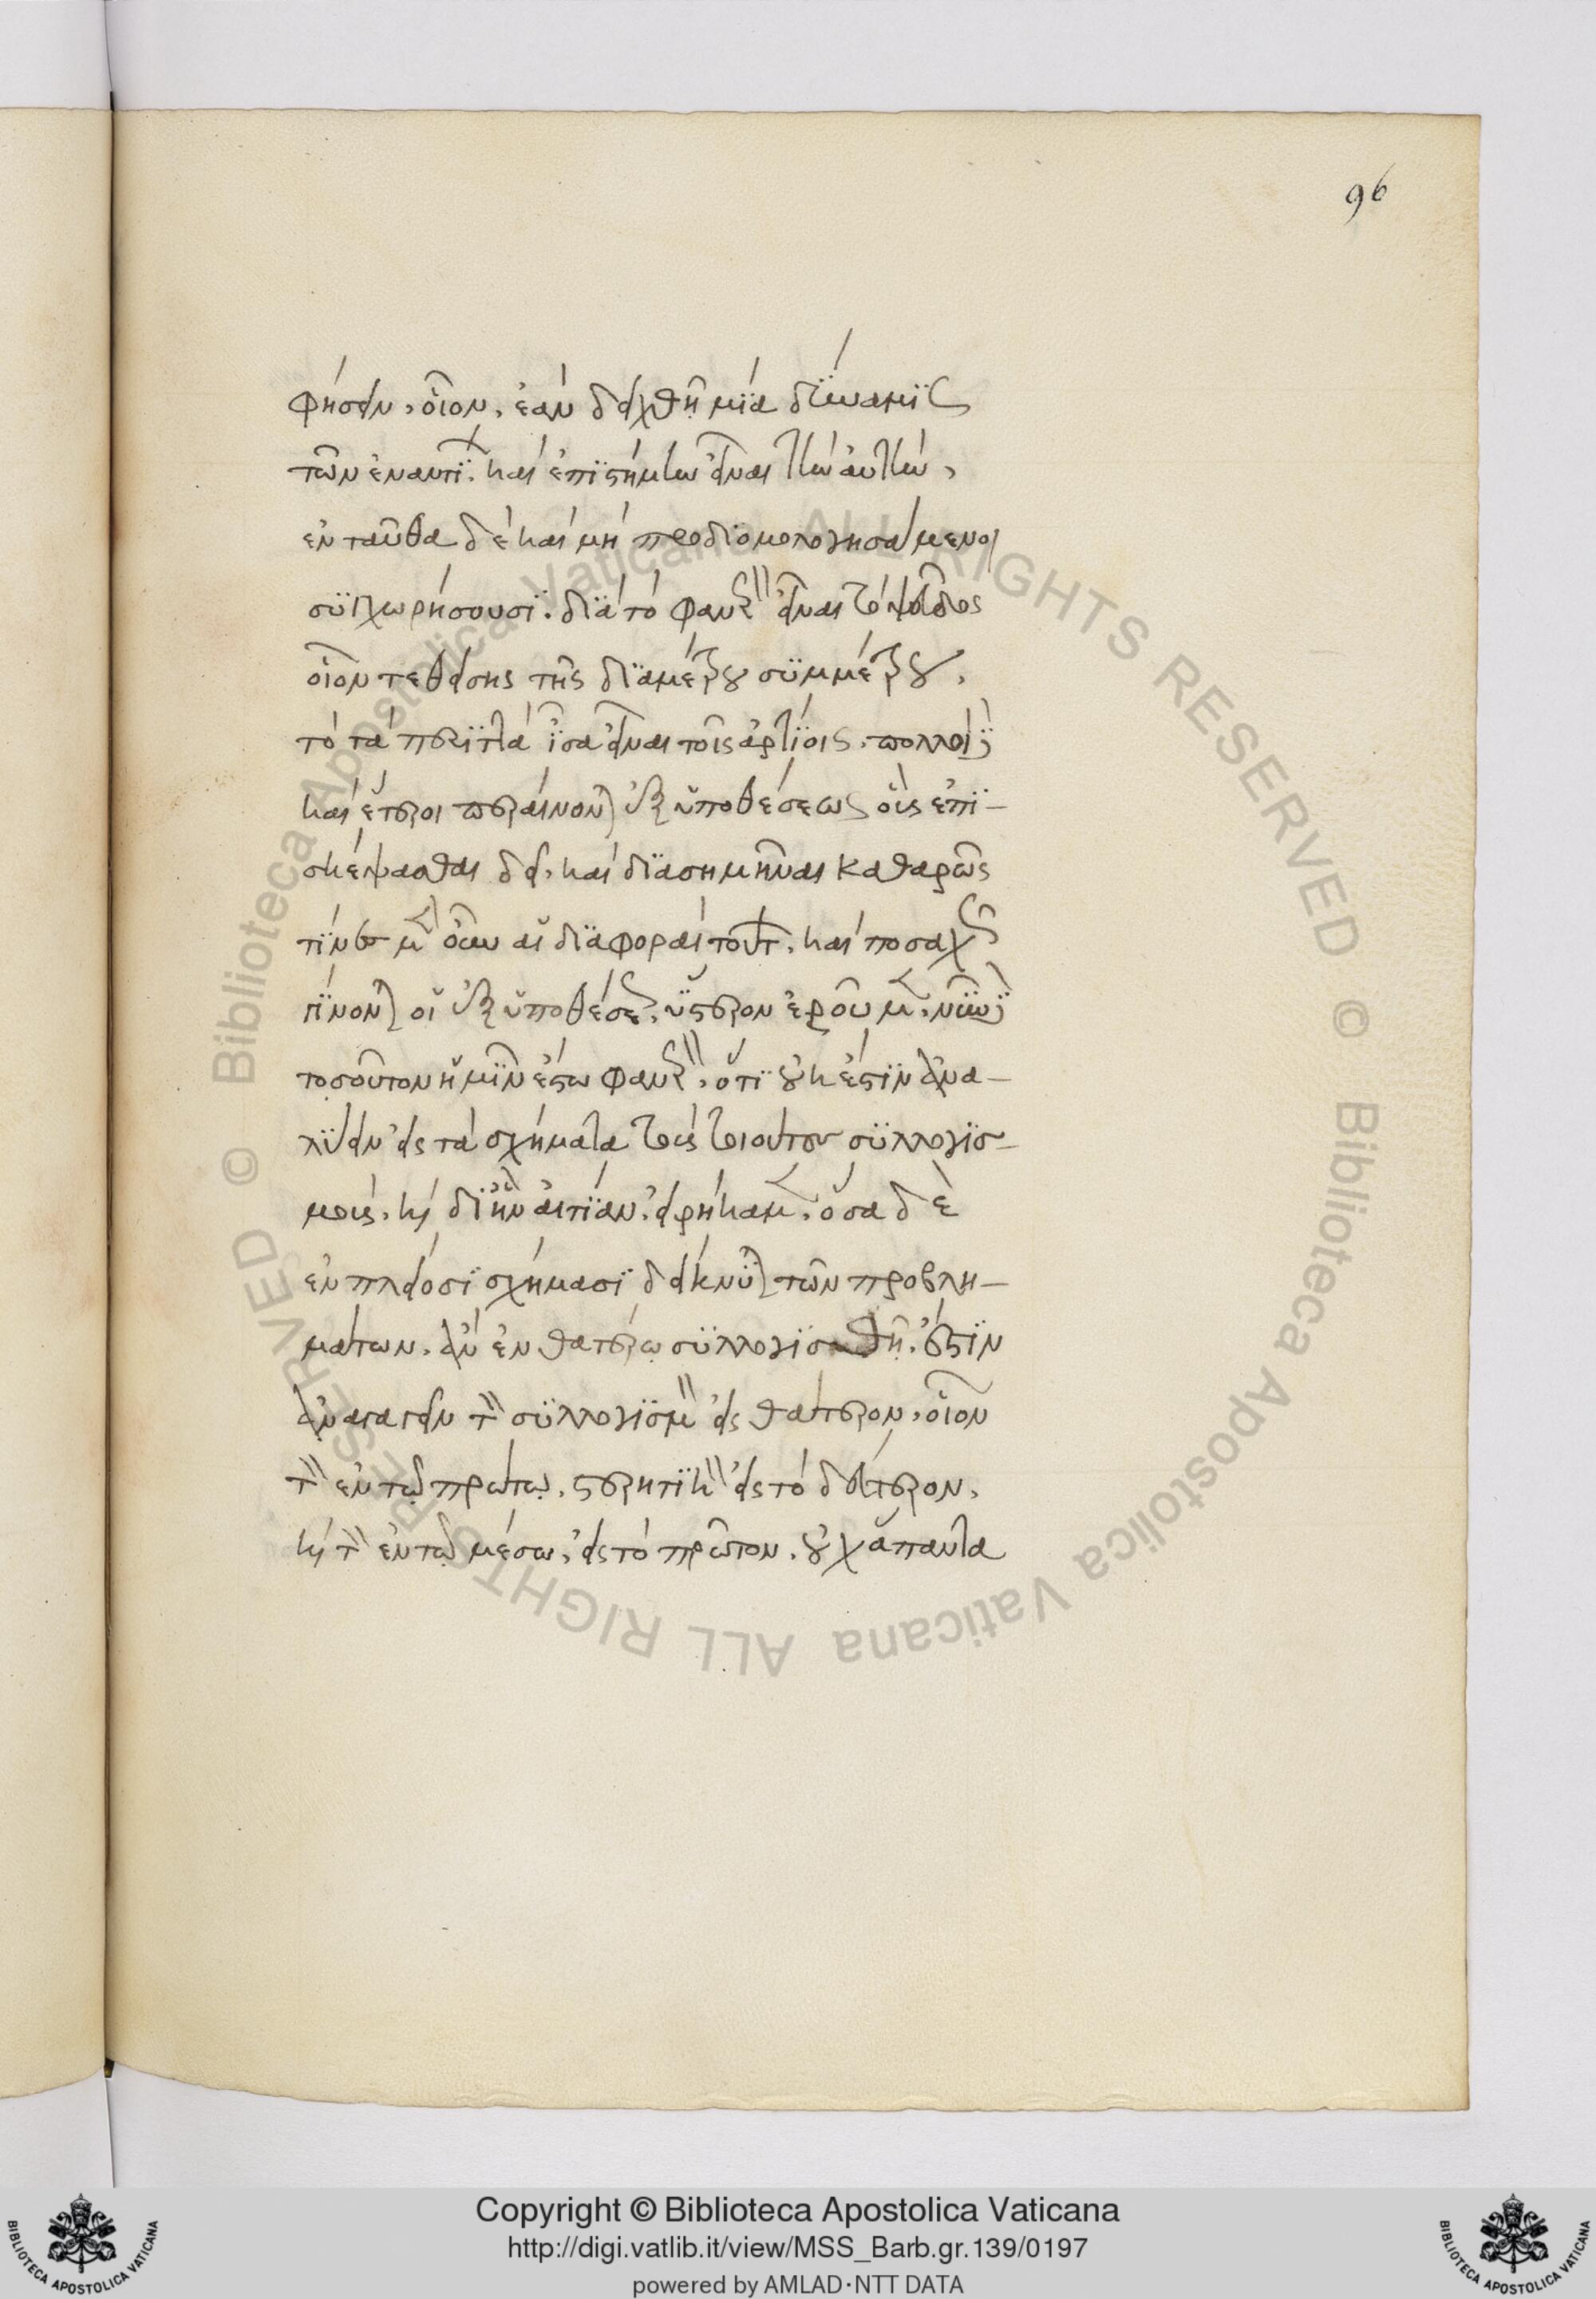 96
φήσειν, οἷον, ἐὰν δειχθῇ μία δύναμις
τῶν ἐναντί. καὶ ἐπιστήμην εἶναι τὴν αὐτήν,
ἐνταῦθα δὲ καὶ μὴ προδιομολογησάμενοι
συγχωρήσουσι. διὰ τὸ φανερὸν εἶναι τὸ ψεῦδος
οἷον τεθείσης τῆς διαμέτρου συμμέτρου,
τὸ τὰ περιττὰ ἴσα εἶναι τοῖς ἀρτίοις. πολλοὶ δὲ
καὶ ἕτεροι περαίνονται ἐξ ὑποθέσεως οὓς ἐπι-
σκέψασθαι δεῖ, καὶ διασημῆναι καθαρῶς
τίνες μὲν οὖν αἱ διαφοραὶ τούτων, καὶ ποσαχῶς
γίνονται οἱ ἐξ ὑποθέσεως, ὕστερον ἐροῦμεν, νῦν δὲ
τοσοῦτον ἡμῖν ἔστω φανερὸν, ὅτι οὐκ ἔστιν ἀνα-
λύειν εἰς τὰ σχήματα τοὺς τοιούτους συλλογισ-
μούς, καὶ δι' ἣν αἰτίαν, εἰρήκαμεν, ὅσα δὲ
ἐν πλείοσι σχήμασι δείκνυται τῶν προβλη-
μάτων, ἂν ἐν θατέρῳ συλλογισθῇ, ἔστιν
ἀναγαγεῖν τὸν συλλογισμὸν εἰς θάτερον, οἷον
τὸν ἐν τῷ πρώτῳ, στερητικὸν εἰς τὸ δεύτερον,
καὶ τὸν ἐν τῷ μέσῳ, εἰς τὸ πρῶτον, οὐχ ἅπαντα
© Biblioteca Apostolica Vaticana ALL RIGHTS RESERVED © Biblioteca Apostolica Vaticana ALL RIGHTS RESERVED
BIBLIOTECA APOSTOLICA VATICANA
Copyright © Biblioteca Apostolica Vaticana
http://digi.vatlib.it/view/MSS_Barb.gr.139/0197
powered by AMLAD·NTT DATA
BIBLIOTECA APOSTOLICA VATICANA